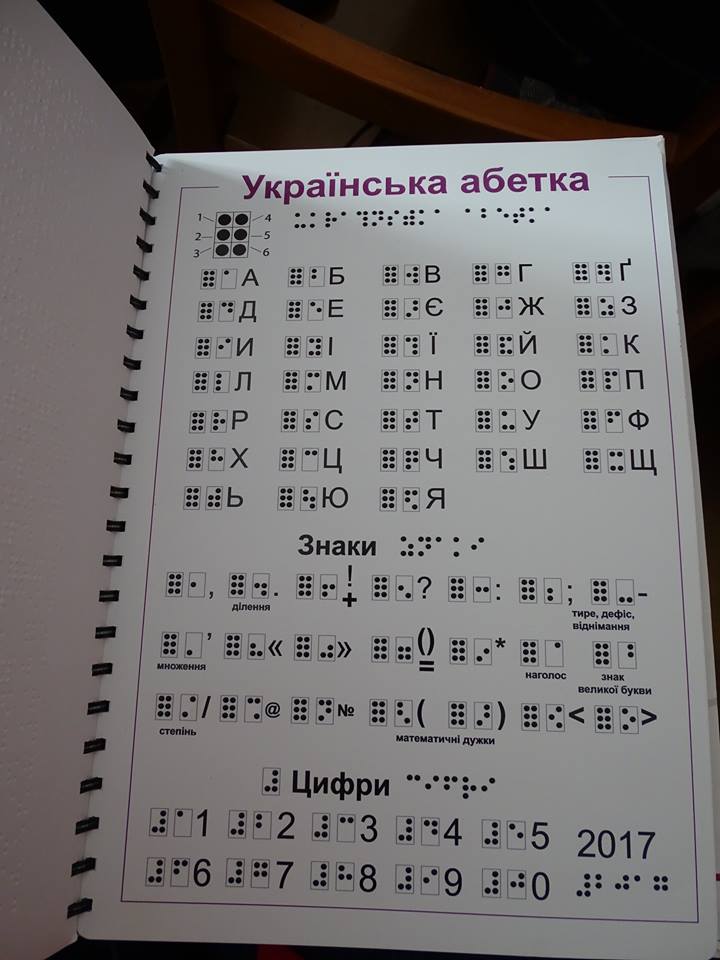 Українська абетка
1 4
2 5
3 6
А Б В Г Ґ
Д Е Є Ж З
И І Ї Й К
Л М Н О П
Р С Т У Ф
Х Ц Ч Ш Щ
Ь Ю Я
Знаки
, . ! + ? : ; -
ділення тире, дефіс, віднімання
’ « » () = *
множення наголос знак великої букви
/ @ № ( ) < >
степінь математичні дужки
Цифри
1 2 3 4 5 2017
6 7 8 9 0